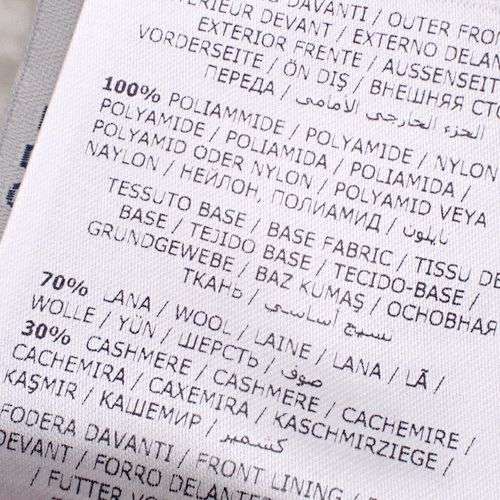 DAVANTI / OUTER FRON
ERIEUR DEVANT / EXTERNO DELAN
EXTERIOR FRENTE / AUSSENSEIT
VORDERSEITE / ÖN DIŞ / ВНЕШНЯЯ СТО
ПЕРЕДА / الجزء الخارجي الأمامي
100% POLIAMMIDE / POLYAMIDE / NYLON
POLYAMIDE / POLIAMIDA / POLIAMIDA /
POLYAMID ODER NYLON / POLYAMID VEYA
NAYLON / НЕЙЛОН, ПОЛИАМИД / نايلون
TESSUTO BASE / BASE FABRIC / TISSU DE
BASE / TEJIDO BASE / TECIDO-BASE /
GRUNDGEWEBE / BAZ KUMAŞ / ОСНОВНАЯ
ТКАНЬ / نسيج أساسي
70% LANA / WOOL / LAINE / LANA / LÃ /
WOLLE / YÜN / ШЕРСТЬ / صوف
30% CASHMERE / CASHMERE / CACHEMIRE /
CACHEMIRA / CAXEMIRA / KASCHMIRZIEGE /
KAŞMIR / КАШЕМИР / كشمير
FODERA DAVANTI / FRONT LINING /
DEVANT / FORRO DELANTE
/ FUTTER VO